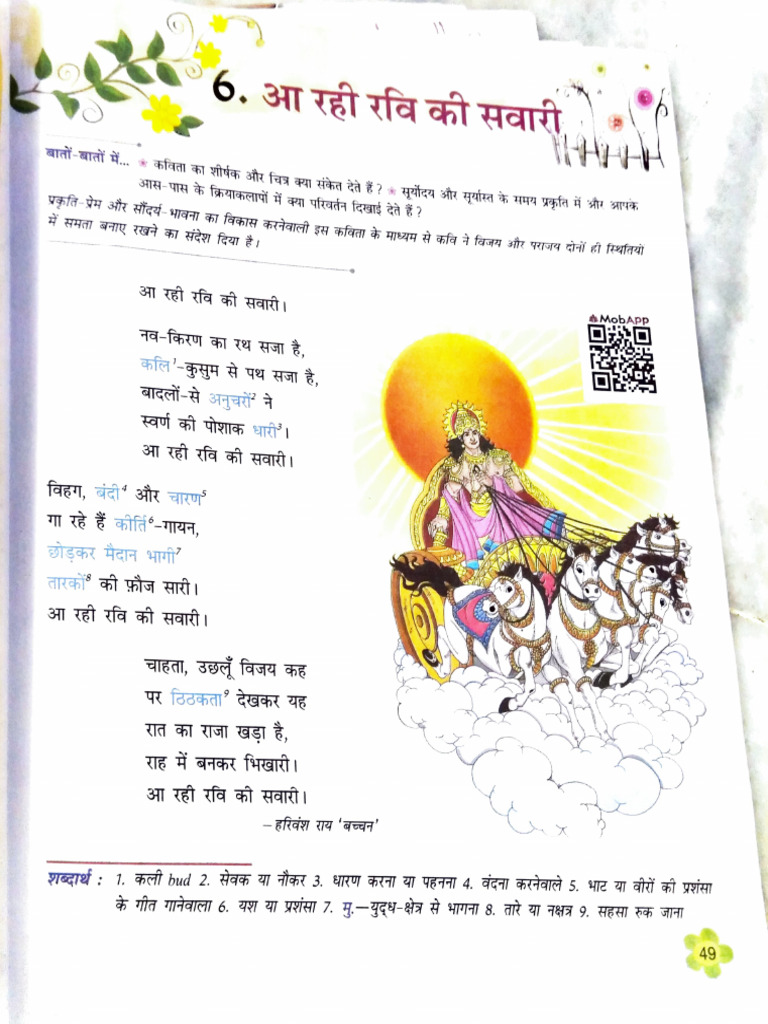 6. आ रही रवि की सवारी
बातों-बातों में... * कविता का शीर्षक और चित्र क्या संकेत देते हैं? * सूर्योदय और सूर्यास्त के समय प्रकृति में और आपके
आस-पास के क्रियाकलापों में क्या परिवर्तन दिखाई देते हैं?
प्रकृति-प्रेम और सौंदर्य-भावना का विकास करनेवाली इस कविता के माध्यम से कवि ने विजय और पराजय दोनों ही स्थितियों
में समता बनाए रखने का संदेश दिया है।
आ रही रवि की सवारी।
MobApp
नव-किरण का रथ सजा है,
कलि¹-कुसुम से पथ सजा है,
बादलों-से अनुचरों² ने
स्वर्ण की पोशाक धारी³।
आ रही रवि की सवारी।
विहग, बंदी⁴ और चारण⁵
गा रहे हैं कीर्ति⁶-गायन,
छोड़कर मैदान भागी⁷
तारकों⁸ की फ़ौज सारी।
आ रही रवि की सवारी।
चाहता, उछलूँ विजय कह
पर ठिठकता⁹ देखकर यह
रात का राजा खड़ा है,
राह में बनकर भिखारी।
आ रही रवि की सवारी।
–हरिवंश राय 'बच्चन'
शब्दार्थ : 1. कली bud 2. सेवक या नौकर 3. धारण करना या पहनना 4. वंदना करनेवाले 5. भाट या वीरों की प्रशंसा
के गीत गानेवाला 6. यश या प्रशंसा 7. मु.—युद्ध-क्षेत्र से भागना 8. तारे या नक्षत्र 9. सहसा रुक जाना
49